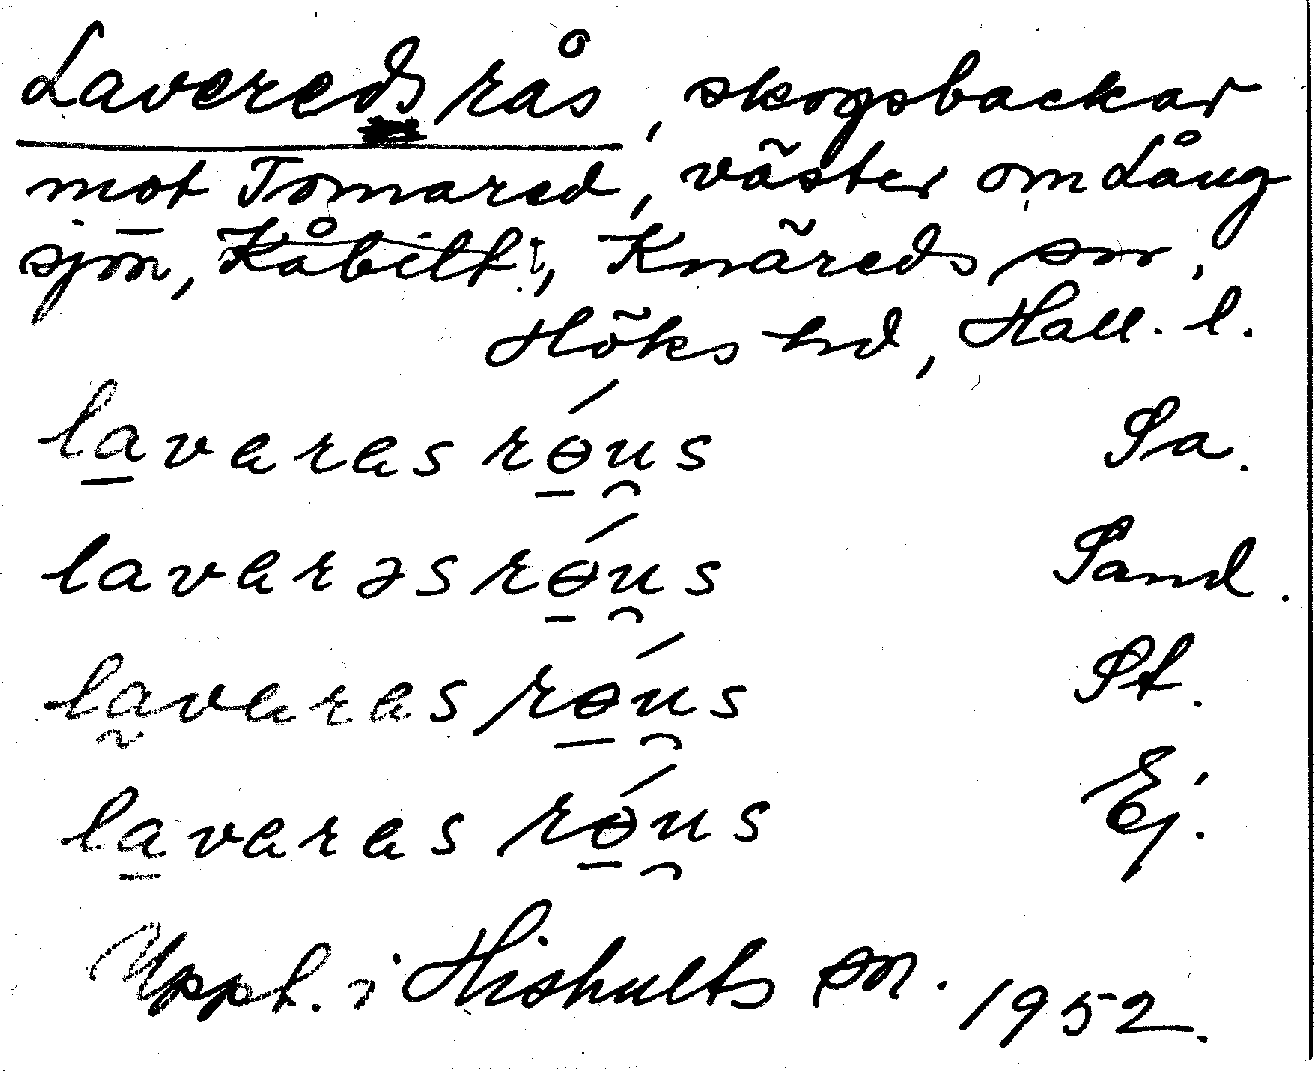 Lavereds rås, skogsbackar
mot Tomared, väster om Lång
sjön, Kåbilt, Knäreds sn,
Höks hd, Hall. l.
lavaras rɵ́us Sa.
lavarəs rɵ́us Sand.
lavaras rɵ́us St.
lavaras rɵ́us Ej.
Uppt. i Hishults sn. 1952.